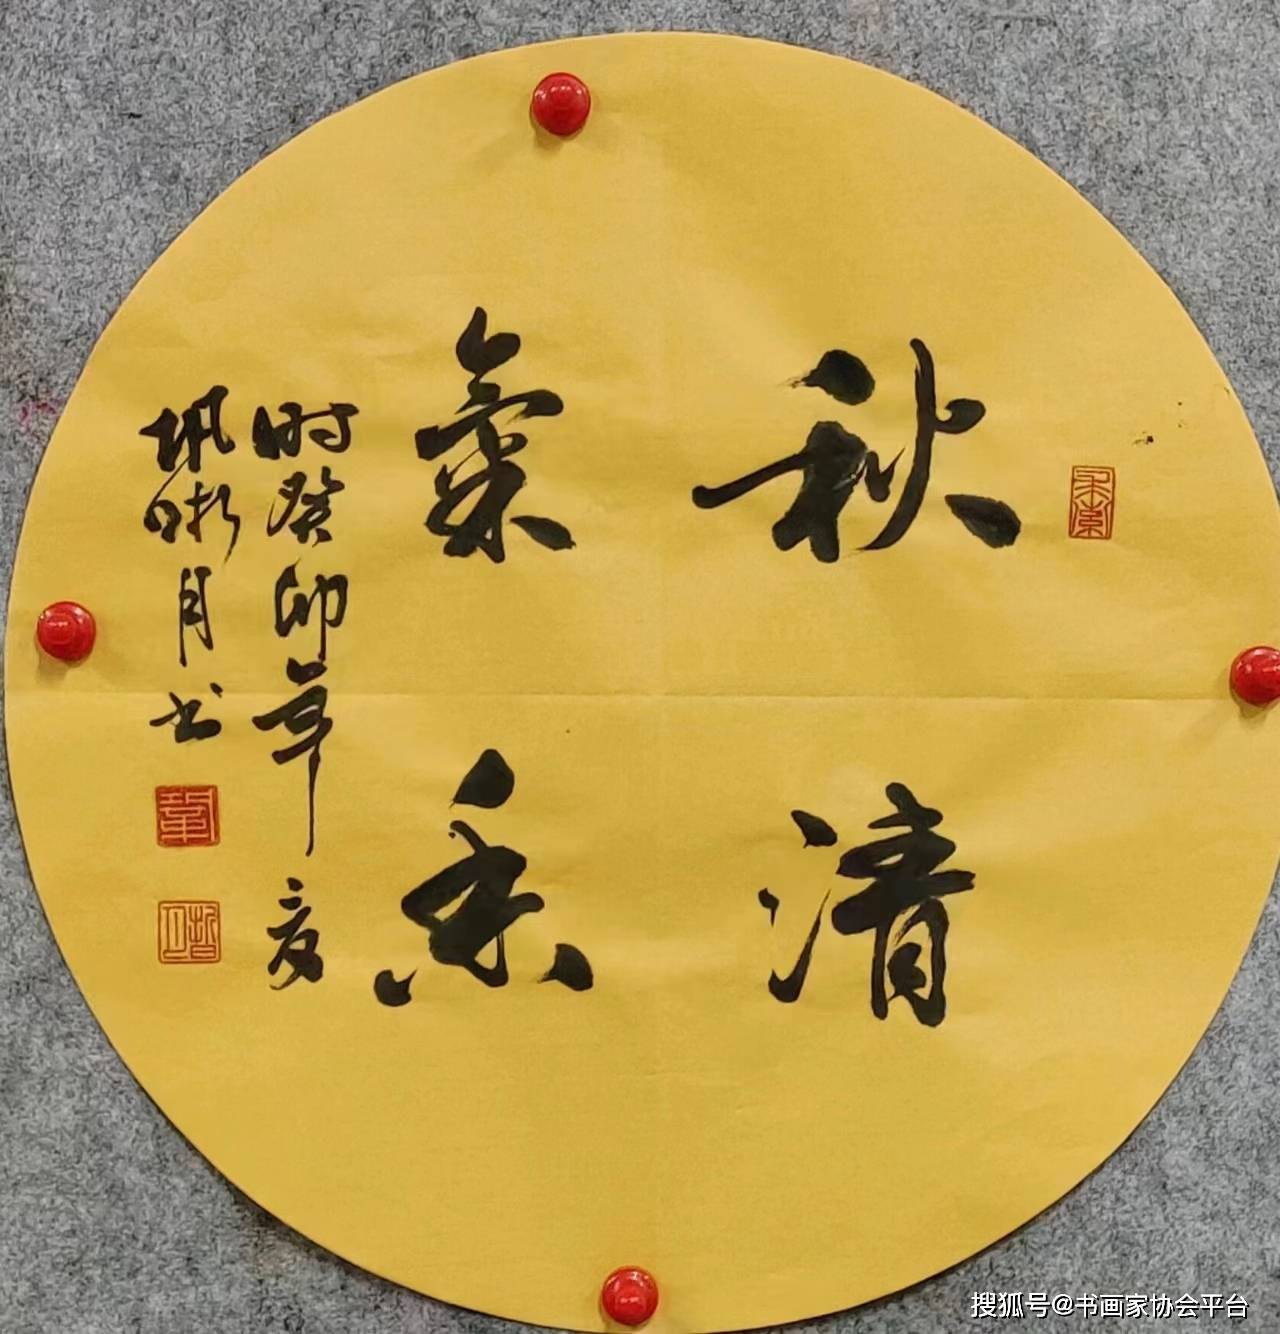 秋清
氣香
时癸卯年夏
月书
搜狐号@书画家协会平台